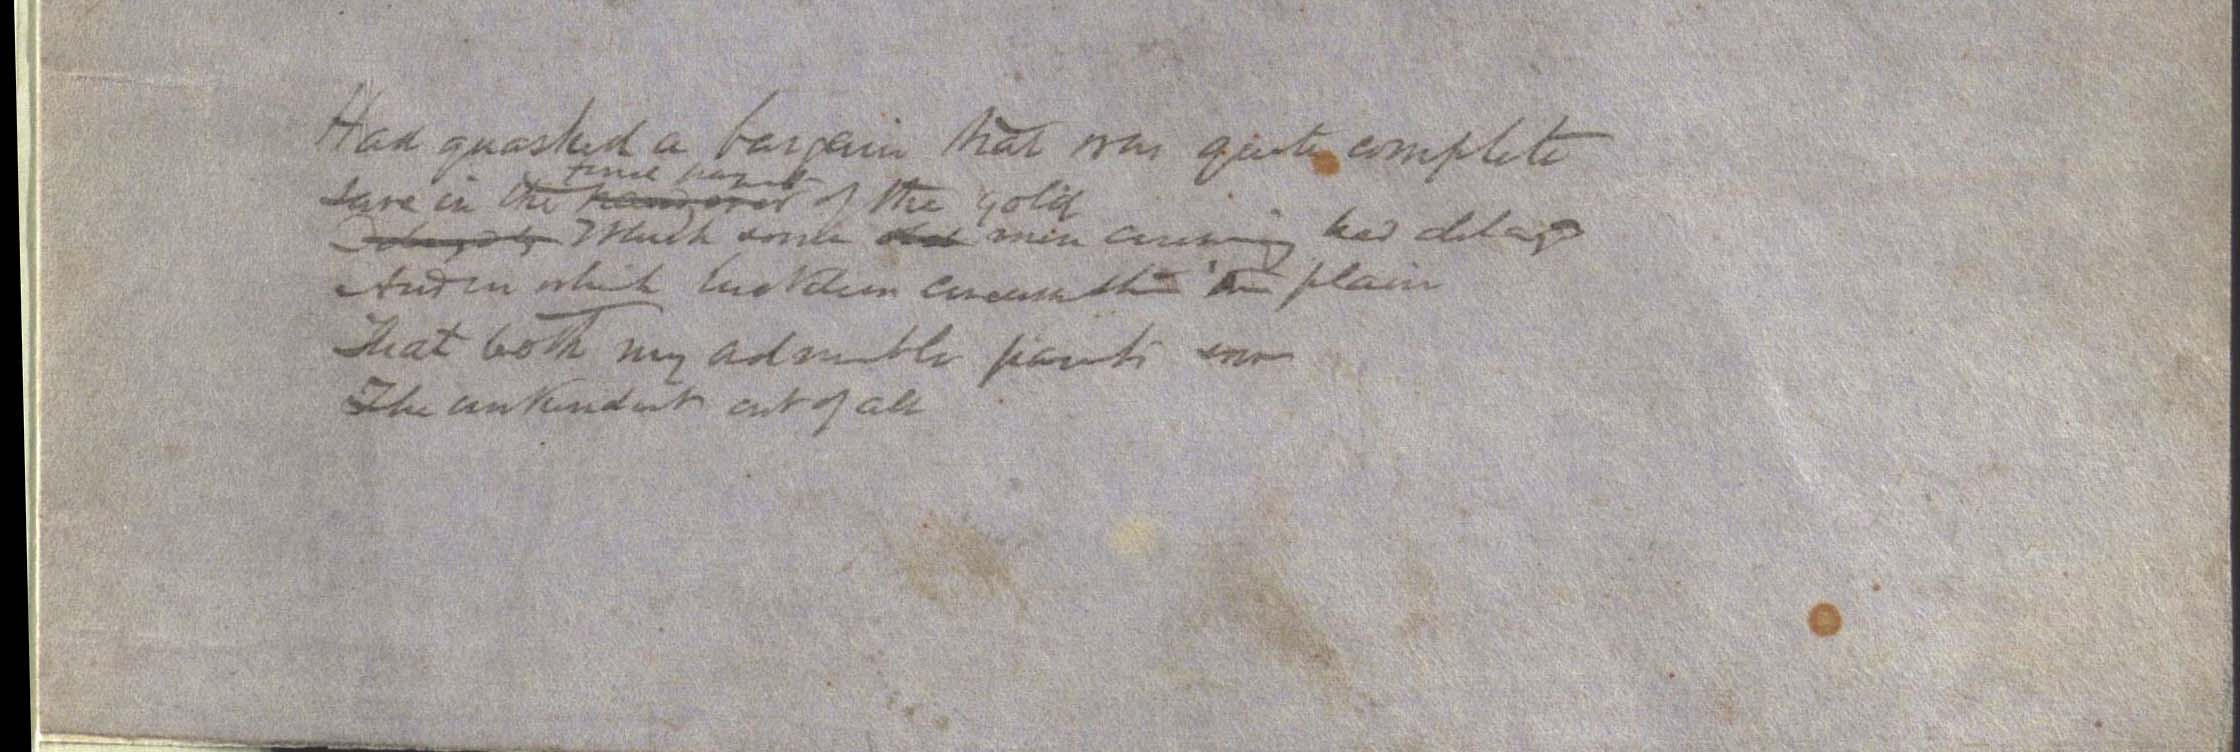 Had quashed a bargain that was quite complete
time payment
Save in the of the gold
Which some men cunning had delayed
And in which plain
That both my admirable parents
The unkindest cut of all